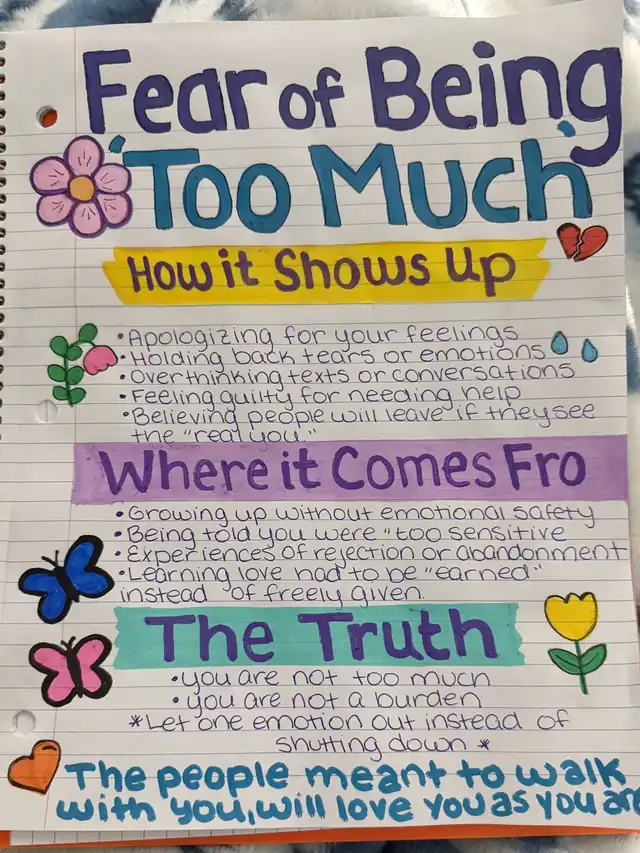 Fear of Being
'Too Much'
How it Shows Up
•Apologizing for your feelings
•Holding back tears or emotions
•Overthinking texts or conversations
•Feeling guilty for needing help
•Believing people will leave if they see
the "real you."
Where it Comes Fro
•Growing up without emotional safety
•Being told you were "too sensitive
•Experiences of rejection or abandonment
•Learning love had to be "earned"
instead of freely given.
The Truth
•you are not too much
•you are not a burden
*Let one emotion out instead of
shutting down *
The people meant to walk
with you, will love you as you are